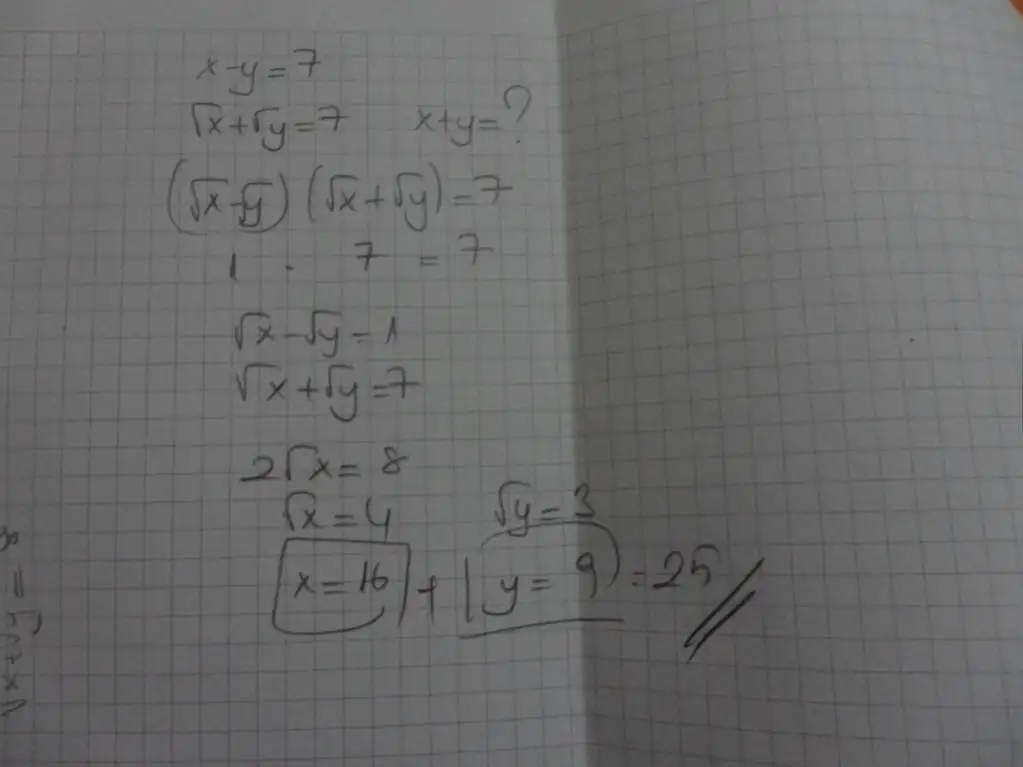 x-y=7
√x+√y=7 x+y=?
(√x-√y) (√x+√y)=7
1 . 7 = 7
√x-√y=1
√x+√y=7
2√x=8
√x=4 √y=3
x=16 + y=9 =25
√x+√y=